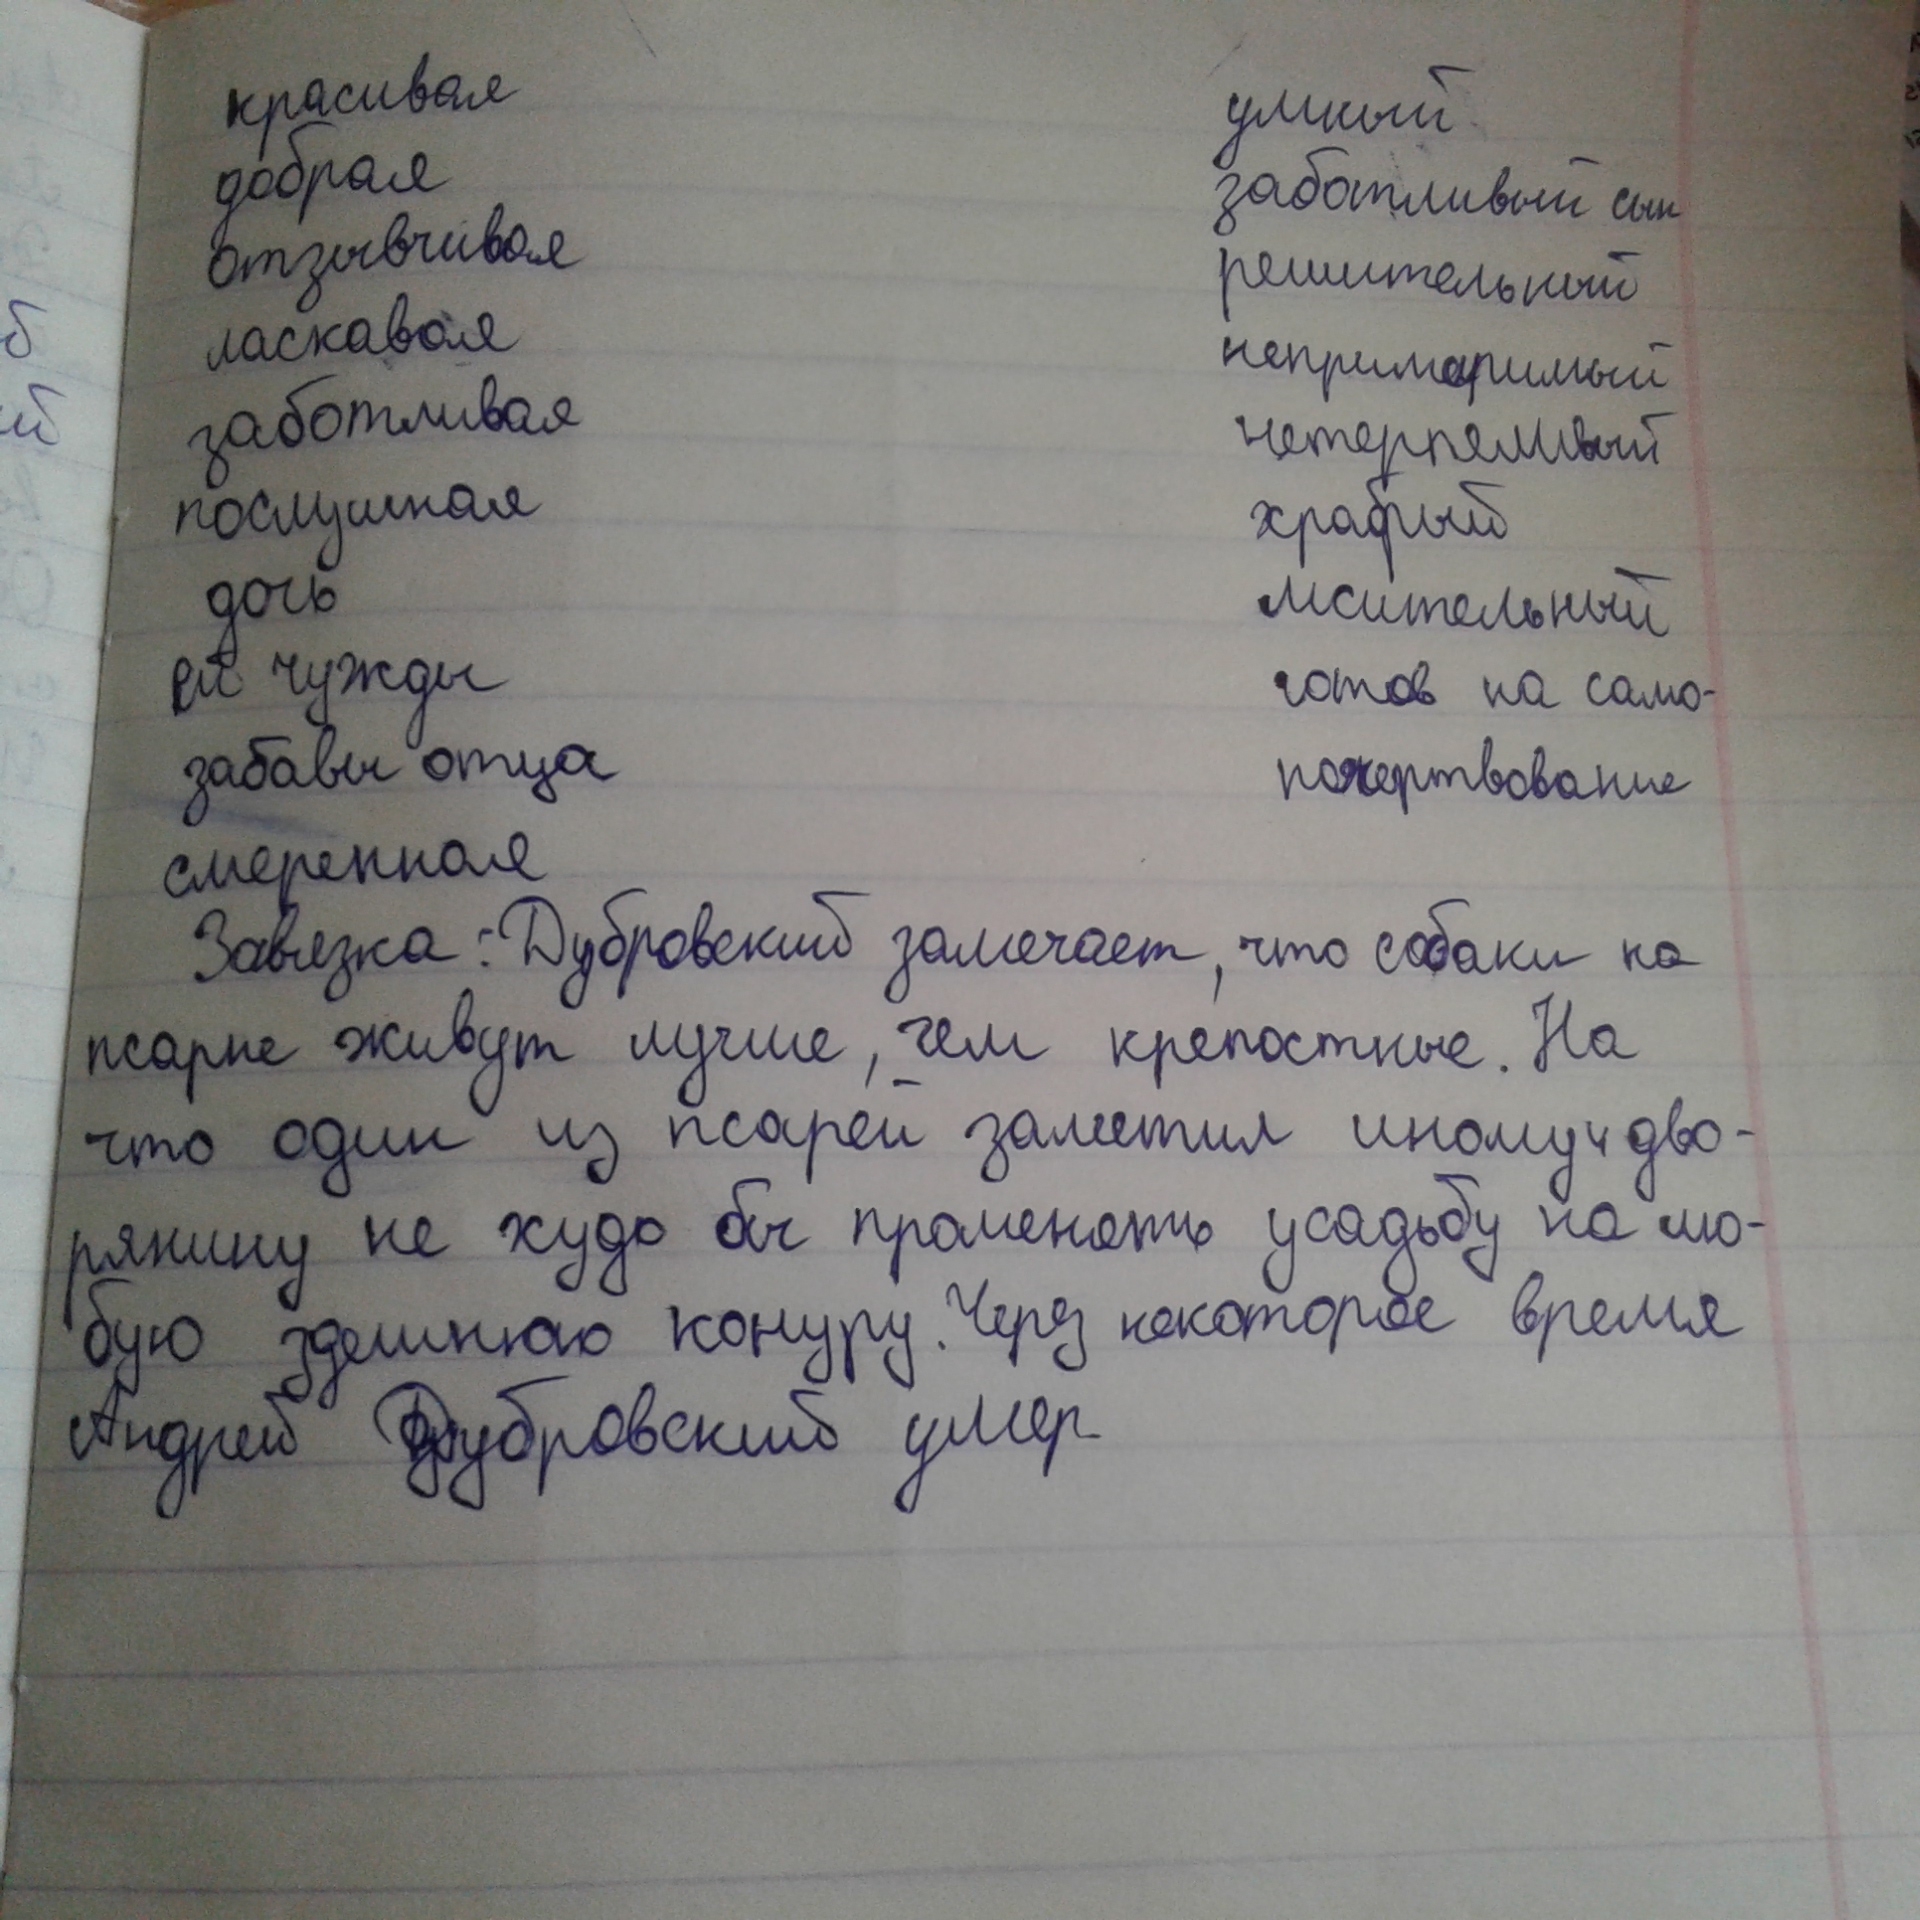 красивая
добрая
отзывчивая
ласкавая
заботливая
послушная
дочь
ей чужды
забавы отца
смеренная
умный
заботливый сын
решительный
неприморимый
нетерпеливый
храбрый
мсительный
готов на само-
пожертвование
Завязка: Дубровский замечает, что собаки на
псарне живут лучше, чем крепостные. На
что один из псарей заметил иному дво-
рянину не худо бы променять усадьбу на лю-
бую здешнюю конуру. Через некоторое время
Андрей Дубровский умер